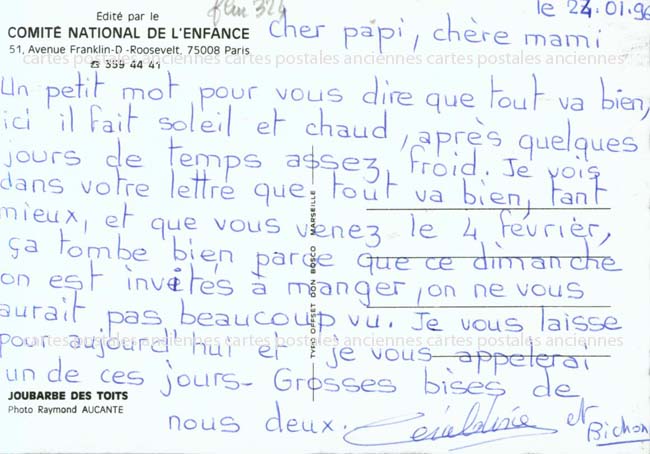 Edité par le
COMITÉ NATIONAL DE L'ENFANCE
51, Avenue Franklin-D-Roosevelt, 75008 Paris
☎ 359 44 41
le 24.01.96
cher papi, chère mami
cartes postales anciennes cartes postales anciennes cartes postales anciennes
Un petit mot pour vous dire que tout va bien,
ici il fait soleil et chaud, après quelques
jours de temps assez froid. Je vois
dans votre lettre que tout va bien, tant
mieux, et que vous venez le 4 février,
ça tombe bien parce que ce dimanche
on est invités à manger, on ne vous
aurait pas beaucoup vu. Je vous laisse
cartes postales anciennes cartes postales anciennes cartes postales anciennes
pour aujourd'hui et je vous appelerai
un de ces jours- Grosses bises de
nous deux.
et Bichon
JOUBARBE DES TOITS
Photo Raymond AUCANTE
TYPO OFFSET DON BOSCO MARSEILLE